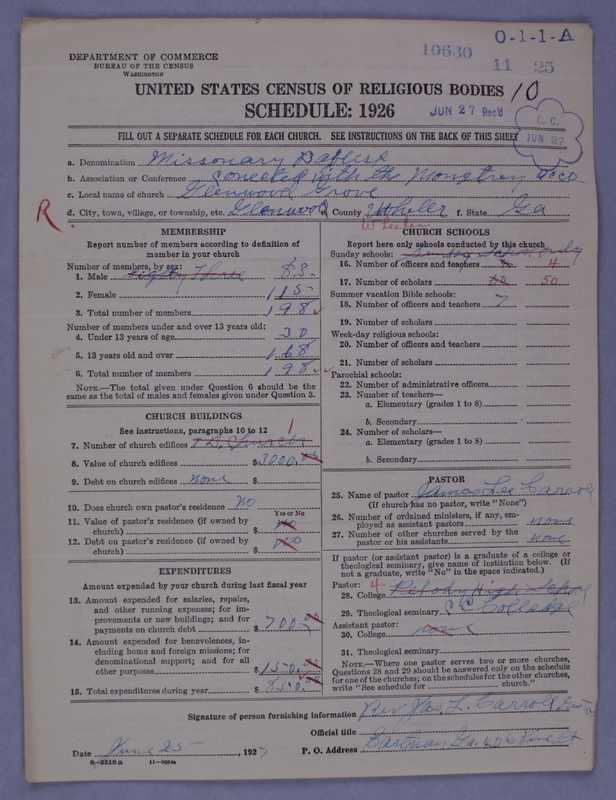 O-1-1-A
10630 11 25
DEPARTMENT OF COMMERCE
BUREAU OF THE CENSUS
WASHINGTON
UNITED STATES CENSUS OF RELIGIOUS BODIES 10
SCHEDULE: 1926
JUN 27 Rec'd
C. C.
JUN 27
FILL OUT A SEPARATE SCHEDULE FOR EACH CHURCH. SEE INSTRUCTIONS ON THE BACK OF THIS SHEET
a. Denomination Missionary Baptist
b. Association or Conference Conected with the
c. Local name of church Glenwood Grove
R. d. City, town, village, or township, etc. Glenwood e. County Wheller f. State Ga
Wheeler
MEMBERSHIP
Report number of members according to definition of
member in your church
Number of members, by sex:
1. Male Eighty Three 83
2. Female 115
3. Total number of members 198
Number of members under and over 13 years old:
4. Under 13 years of age 30
5. 13 years old and over 168
6. Total number of members 198
NOTE.—The total given under Question 6 should be the
same as the total of males and females given under Question 3.
CHURCH BUILDINGS
See instructions, paragraphs 10 to 12
7. Number of church edifices 1
8. Value of church edifices $3000.00
9. Debt on church edifices none $
10. Does church own pastor's residence? No
Yes or No
11. Value of pastor's residence (if owned by
church) $ no
12. Debt on pastor's residence (if owned by
church) $ no
EXPENDITURES
Amount expended by your church during last fiscal year
13. Amount expended for salaries, repairs,
and other running expenses; for im-
provements or new buildings; and for
payments on church debt $700.00
14. Amount expended for benevolences, in-
cluding home and foreign missions; for
denominational support; and for all
other purposes $150.00
15. Total expenditures during year $850.00
CHURCH SCHOOLS
Report here only schools conducted by this church
Sunday schools: Sunday School only
16. Number of officers and teachers 4
17. Number of scholars 50
Summer vacation Bible schools:
18. Number of officers and teachers 7
19. Number of scholars
Week-day religious schools:
20. Number of officers and teachers
21. Number of scholars
Parochial schools:
22. Number of administrative officers
23. Number of teachers—
a. Elementary (grades 1 to 8)
b. Secondary
24. Number of scholars—
a. Elementary (grades 1 to 8)
b. Secondary
PASTOR
25. Name of pastor James Lee Carroll
(If church has no pastor, write "None")
26. Number of ordained ministers, if any, em-
ployed as assistant pastors none
27. Number of other churches served by the
pastor or his assistants none
If pastor (or assistant pastor) is a graduate of a college or
theological seminary, give name of institution below. (If
not a graduate, write "No" in the space indicated.)
Pastor: 4
28. College High School
29. Theological seminary Colledge
Assistant pastor:
30. College none
31. Theological seminary
NOTE.—Where one pastor serves two or more churches,
Questions 28 and 29 should be answered only on the schedule
for one of the churches; on the schedules for the other churches,
write "See schedule for church."
Signature of person furnishing information Rev Jas. L. Carroll
Official title
Date June 25, 1927 P. O. Address Eastman Ga. 406 Pine St
8—5518a 11—9084a